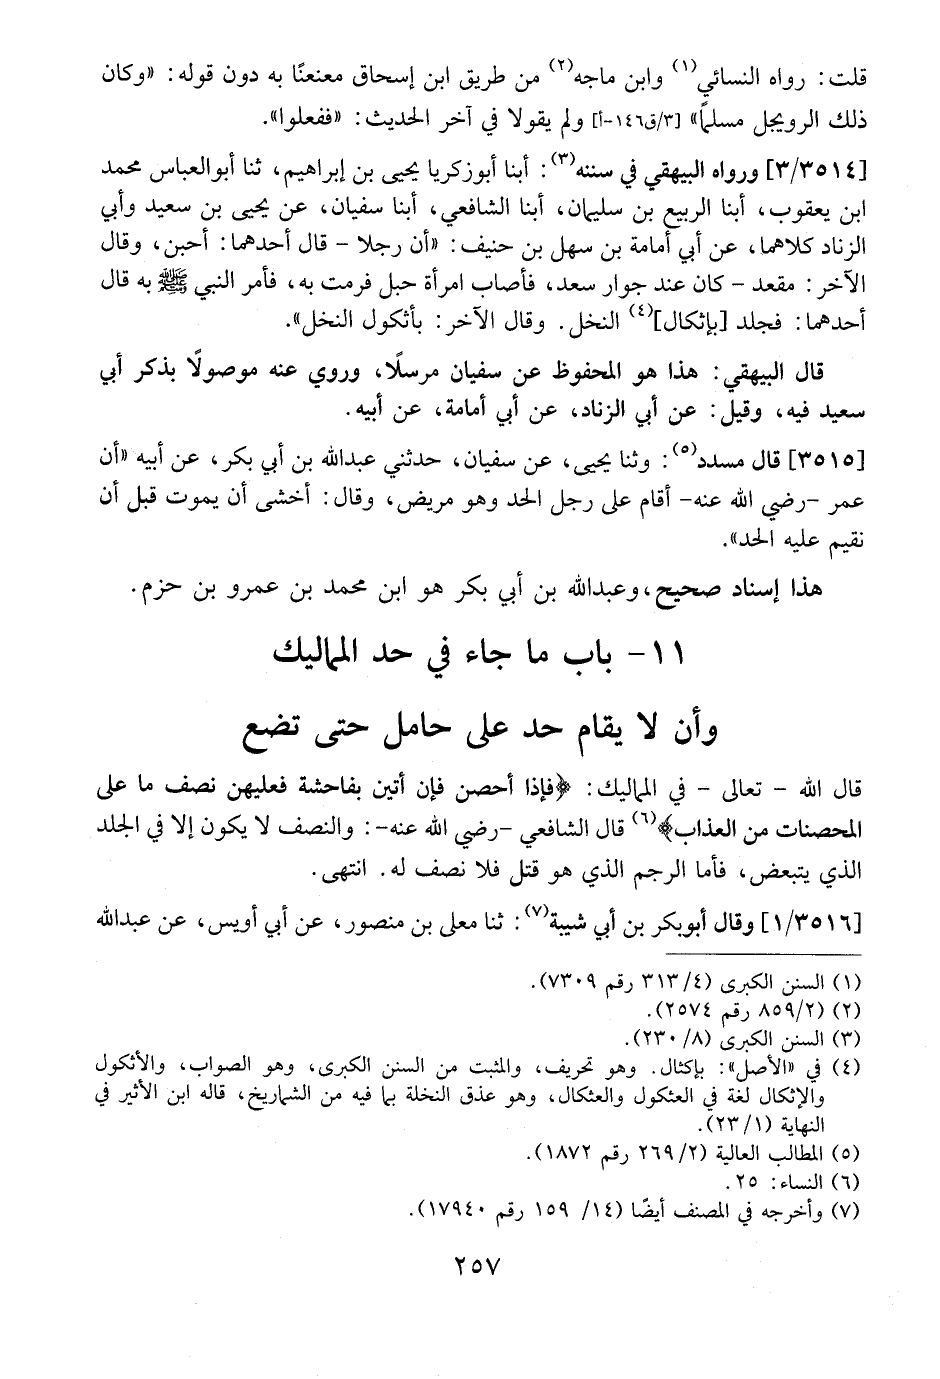 قلت: رواه النسائي(١) وابن ماجه(٢) من طريق ابن إسحاق معنعنًا به دون قوله: «وكان
ذلك الرويجل مسلمًا» [٣/ق١٤٦-أ] ولم يقولا في آخر الحديث: «ففعلوا».
[٣/٣٥١٤] ورواه البيهقي في سننه(٣): أبنا أبوزكريا يحيى بن إبراهيم، ثنا أبوالعباس محمد
ابن يعقوب، أبنا الربيع بن سليمان، أبنا الشافعي، أبنا سفيان، عن يحيى بن سعيد وأبي
الزناد كلاهما، عن أبي أمامة بن سهل بن حنيف: «أن رجلا - قال أحدهما: أحبن، وقال
الآخر: مقعد - كان عند جوار سعد، فأصاب امرأة حبل فرمت به، فأمر النبي ﷺ به قال
أحدهما: فجلد [بإثكال](٤) النخل. وقال الآخر: بأثكول النخل».
قال البيهقي: هذا هو المحفوظ عن سفيان مرسلًا، وروي عنه موصولًا بذكر أبي
سعيد فيه، وقيل: عن أبي الزناد، عن أبي أمامة، عن أبيه.
[٣٥١٥] قال مسدد(٥): وثنا يحيى، عن سفيان، حدثني عبدالله بن أبي بكر، عن أبيه «أن
عمر -رضي الله عنه- أقام على رجل الحد وهو مريض، وقال: أخشى أن يموت قبل أن
نقيم عليه الحد».
هذا إسناد صحيح، وعبدالله بن أبي بكر هو ابن محمد بن عمرو بن حزم.
١١- باب ما جاء في حد المماليك
وأن لا يقام حد على حامل حتى تضع
قال الله - تعالى - في المماليك: ﴿فإذا أحصن فإن أتين بفاحشة فعليهن نصف ما على
المحصنات من العذاب﴾(٦) قال الشافعي -رضي الله عنه-: والنصف لا يكون إلا في الجلد
الذي يتبعض، فأما الرجم الذي هو قتل فلا نصف له. انتهى.
[١/٣٥١٦] وقال أبوبكر بن أبي شيبة(٧): ثنا معلى بن منصور، عن أبي أويس، عن عبدالله
(١) السنن الكبرى (٤/ ٣١٣ رقم ٧٣٠٩).
(٢) (٢/ ٨٥٩ رقم ٢٥٧٤).
(٣) السنن الكبرى (٨/ ٢٣٠).
(٤) في «الأصل»: بإكثال. وهو تحريف، والمثبت من السنن الكبرى، وهو الصواب، والأثكول
والإثكال لغة في العثكول والعثكال، وهو عذق النخلة بما فيه من الشماريخ، قاله ابن الأثير في
النهاية (١/ ٢٣).
(٥) المطالب العالية (٢/ ٢٦٩ رقم ١٨٧٢).
(٦) النساء: ٢٥.
(٧) وأخرجه في المصنف أيضًا (١٤/ ١٥٩ رقم ١٧٩٤٠).
٢٥٧